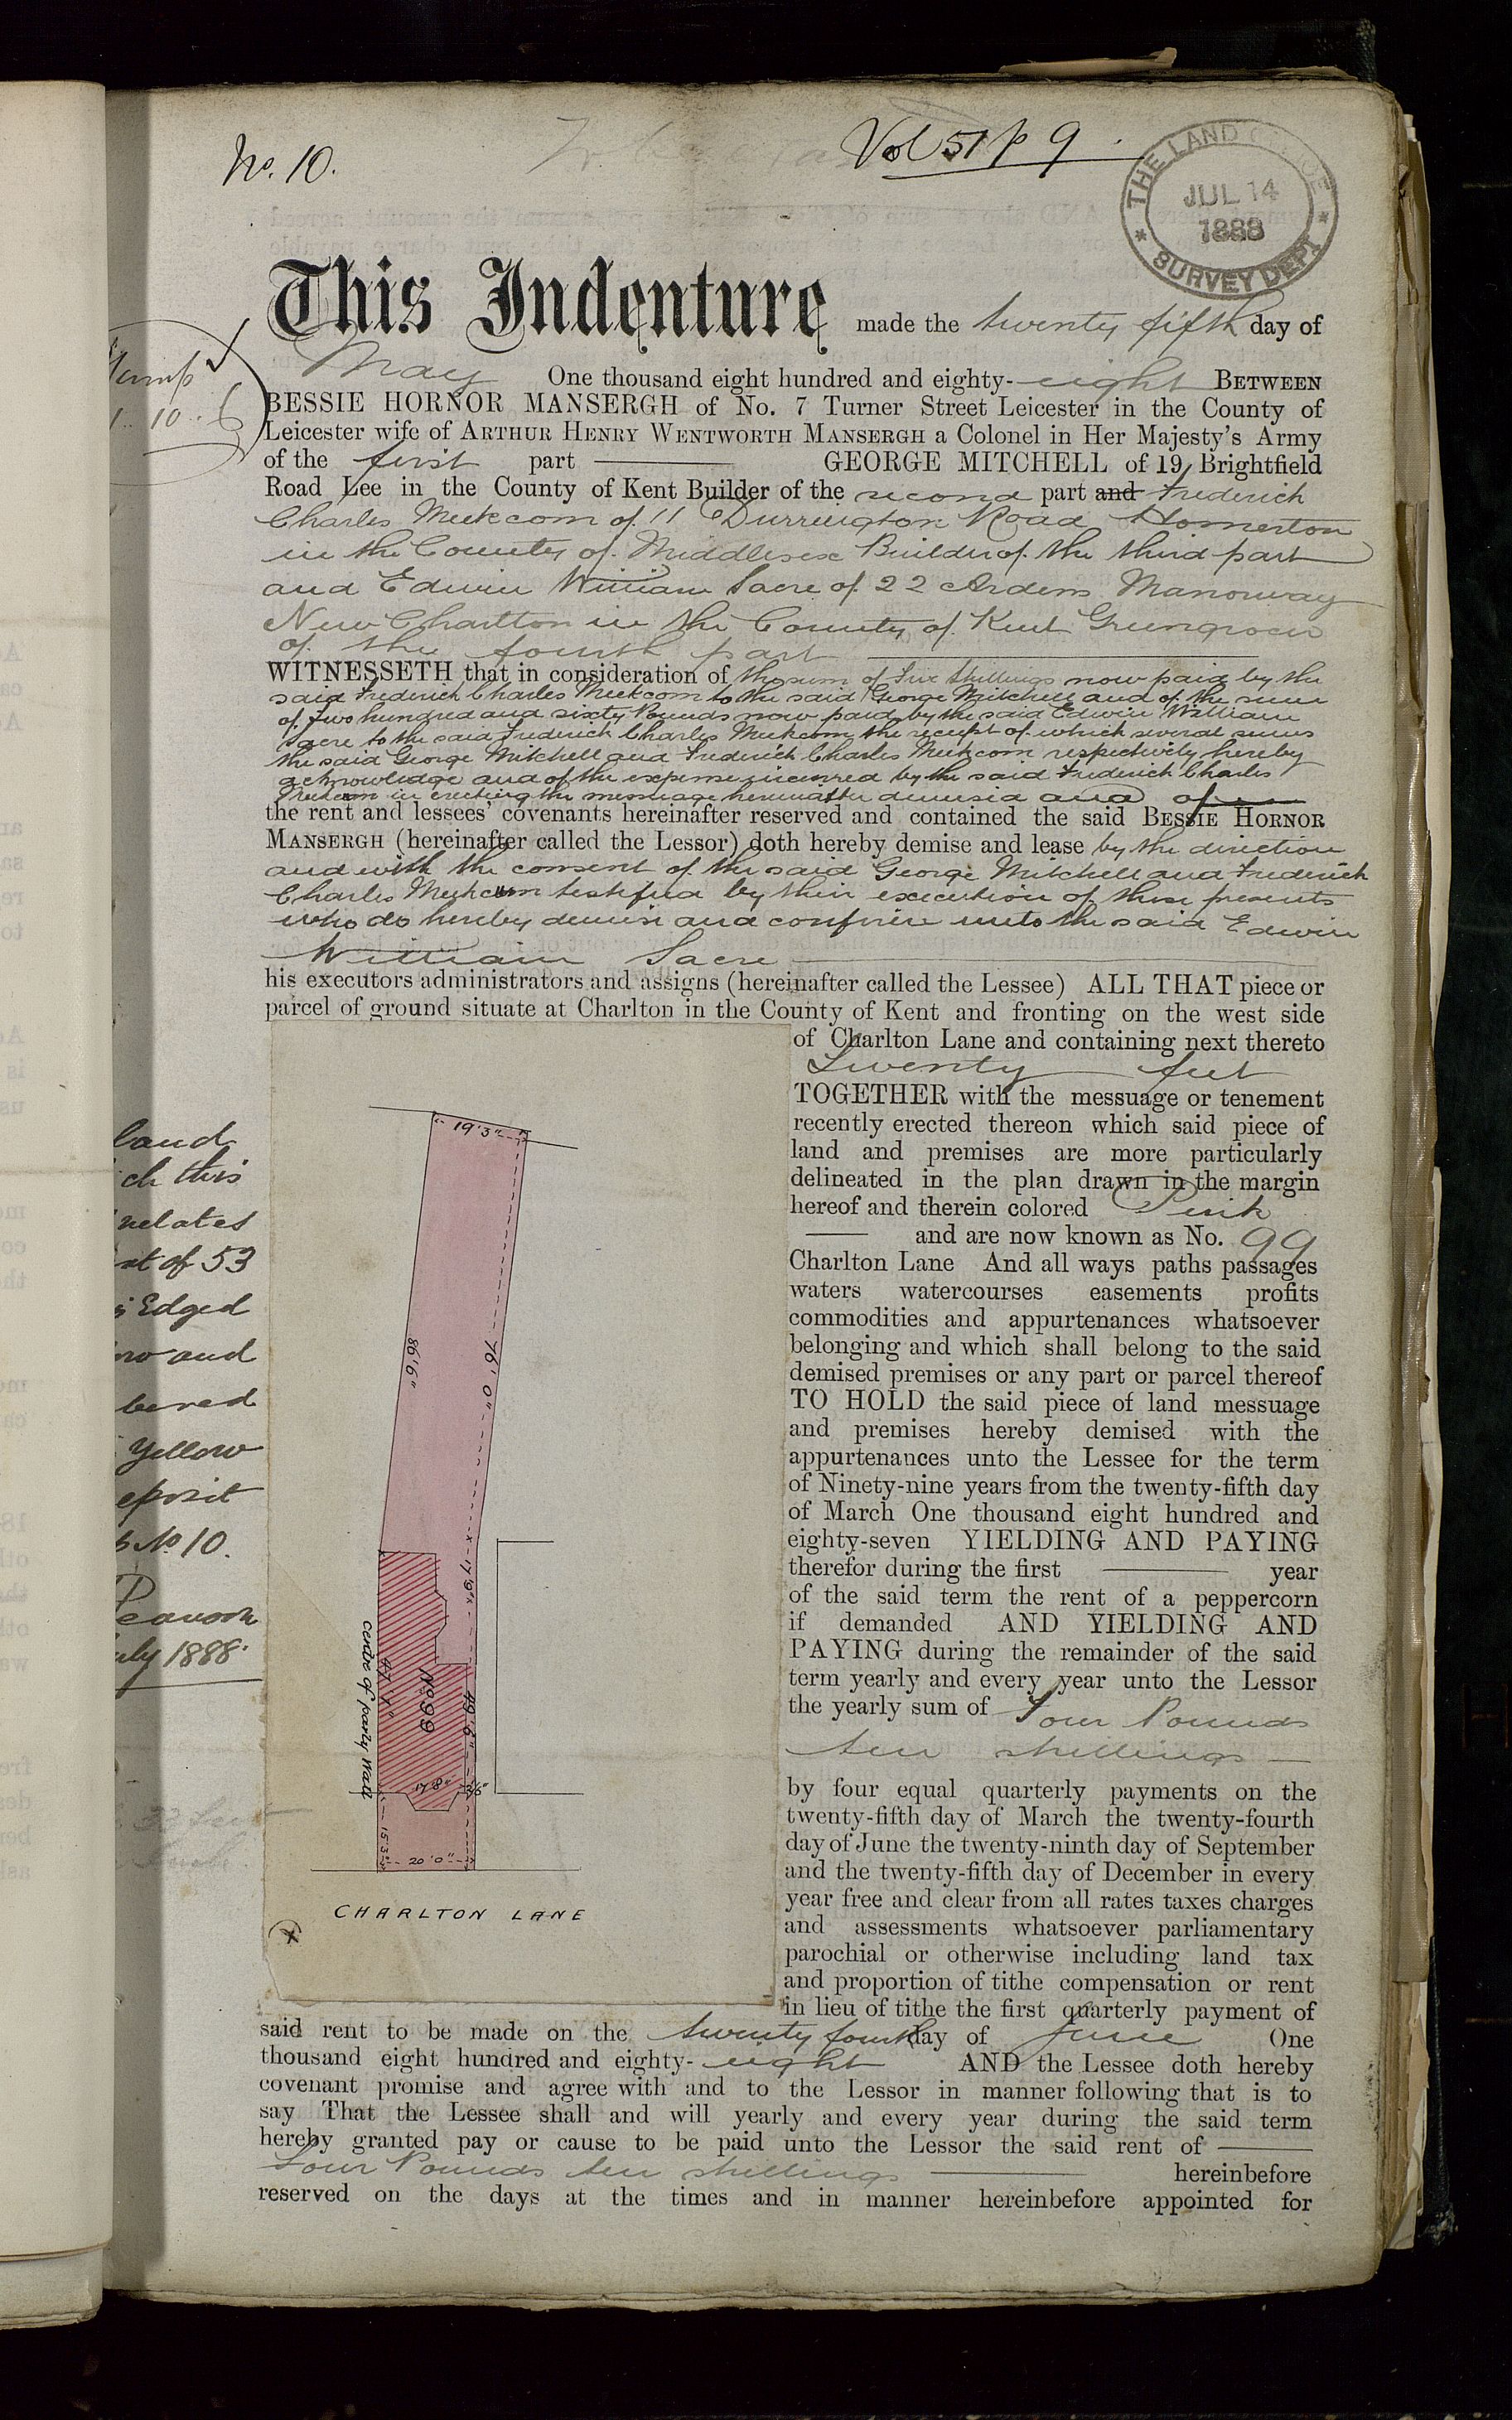 No. 10.
Vol 51 p 9
THE LAND
JUL 14
1888
SURVEY DEPT
This Indenture made the twenty fifth day of
May One thousand eight hundred and eighty-eight BETWEEN
BESSIE HORNOR MANSERGH of No. 7 Turner Street Leicester in the County of
Leicester wife of ARTHUR HENRY WENTWORTH MANSERGH a Colonel in Her Majesty's Army
of the first part GEORGE MITCHELL of 19, Brightfield
Road Lee in the County of Kent Builder of the second part and Frederick
Charles Meekcom of 11 Durrington Road Homerton
in the County of Middlesex Builder of the third part
and Edwin William Sacre of 22 Ardens Manorway
New Charlton in the County of Kent Greengrocer
of the fourth part
WITNESSETH that in consideration of the sum of Five Shillings now paid by the
said Frederick Charles Meekcom to the said George Mitchell and of the sum
of Two hundred and sixty Pounds now paid by the said Edwin William
Sacre to the said Frederick Charles Meekcom the receipt of which several sums
the said George Mitchell and Frederick Charles Meekcom respectively hereby
acknowledge and of the expense incurred by the said Frederick Charles
Meekcom in erecting the messuage hereinafter demised and of
the rent and lessees' covenants hereinafter reserved and contained the said BESSIE HORNOR
MANSERGH (hereinafter called the Lessor) doth hereby demise and lease by the direction
and with the consent of the said George Mitchell and Frederick
Charles Meekcom testified by their execution of these presents
who do hereby demise and confirm unto the said Edwin
William Sacre
his executors administrators and assigns (hereinafter called the Lessee) ALL THAT piece or
parcel of ground situate at Charlton in the County of Kent and fronting on the west side
of Charlton Lane and containing next thereto
Twenty feet
TOGETHER with the messuage or tenement
recently erected thereon which said piece of
land and premises are more particularly
delineated in the plan drawn in the margin
hereof and therein colored Pink
and are now known as No. 99
Charlton Lane And all ways paths passages
waters watercourses easements profits
commodities and appurtenances whatsoever
belonging and which shall belong to the said
demised premises or any part or parcel thereof
TO HOLD the said piece of land messuage
and premises hereby demised with the
appurtenances unto the Lessee for the term
of Ninety-nine years from the twenty-fifth day
of March One thousand eight hundred and
eighty-seven YIELDING AND PAYING
therefor during the first year
of the said term the rent of a peppercorn
if demanded AND YIELDING AND
PAYING during the remainder of the said
term yearly and every year unto the Lessor
the yearly sum of Four Pounds
ten shillings
by four equal quarterly payments on the
twenty-fifth day of March the twenty-fourth
day of June the twenty-ninth day of September
and the twenty-fifth day of December in every
year free and clear from all rates taxes charges
and assessments whatsoever parliamentary
parochial or otherwise including land tax
and proportion of tithe compensation or rent
in lieu of tithe the first quarterly payment of
said rent to be made on the twenty fourth day of June One
thousand eight hundred and eighty-eight AND the Lessee doth hereby
covenant promise and agree with and to the Lessor in manner following that is to
say That the Lessee shall and will yearly and every year during the said term
hereby granted pay or cause to be paid unto the Lessor the said rent of
Four Pounds ten shillings hereinbefore
reserved on the days at the times and in manner hereinbefore appointed for
19'3"
86'6"
76'0"
17'9"
47'1"
No 99
49'6"
centre of party wall
17'8"
15'3"
20'0"
CHARLTON LANE
land
ch this
relates
of 53
Edged
and
Yellow
No 10.
1888.